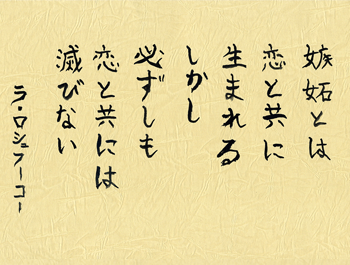 嫉妬とは
恋と共に
生まれる
しかし
必ずしも
恋と共には
滅びない
ラ・ロシュフーコー